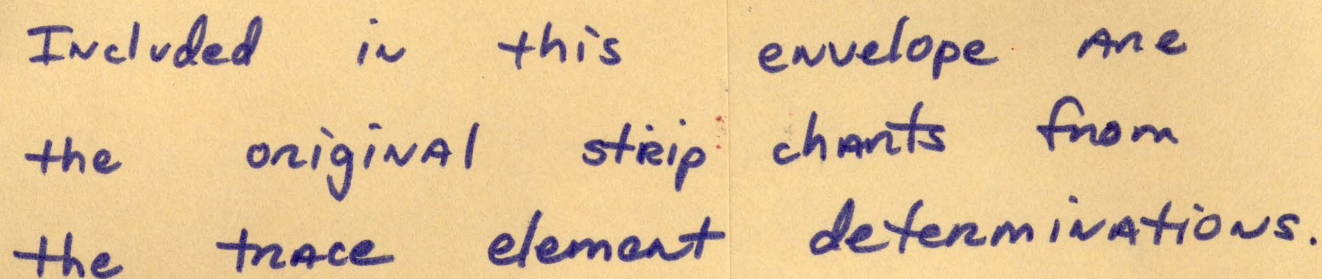 Included in this envelope are
the original strip charts from
the trace element determinations.